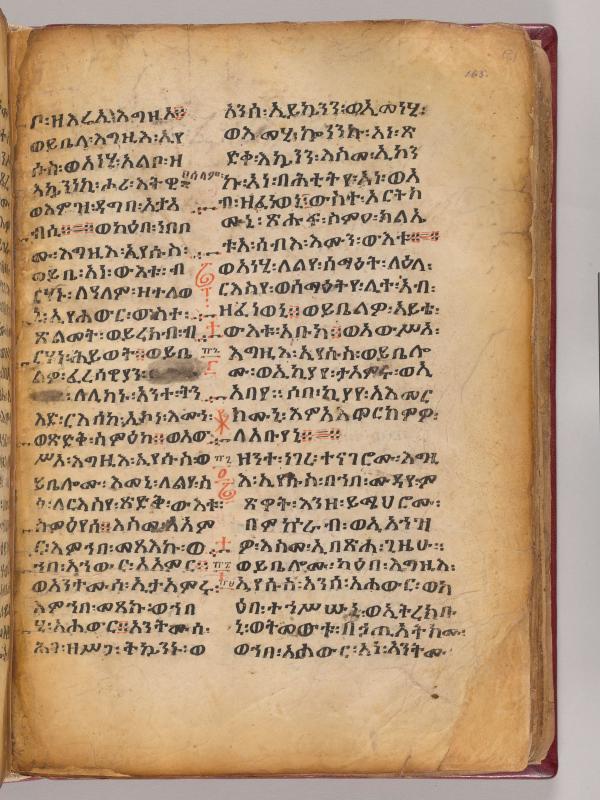 ቦ፡ዘእረእ፡እግዚኦ።
ወይቤላ፡እግዚእ፡ኢየ
ሱስ፡ወአነሂ፡አልቦ፡ዘ
እኴንነኪ፡ሖሪ፡እትዊ፡በሰላም፡
ወእምዝ፡ዳግበ፡ኢታአ
ብሲ፡፡ወካዕበ፡ነበቦ
ሙ፡እግዚእ፡ኢየሱስ፡
ወይቤ፡አነ፡ውእቱ፡ብ
ርሃኑ፡ለዓለም፡ዘተለወ
ኒ፡ኢየሐውር፡ውስተ፡
ጽልመት፡ወይረክብ፡ብ
ርሃነ፡ሕይወት፡፡ወይቤ
ልዎ፡ፈሪሳዊያን፡
ለሊከኑ፡አንተ፡ትን
እድ፡ርእሰከ፡ኢኮነ፡እሙነ፡
ወጽድቀ፡ስምዕከ፡፡ወአው
ሥአ፡እግዚእ፡ኢየሱስ፡ወ
ይቤሎሙ፡እመኒ፡ለልየ፡ስ
ለርእስየ፡ጽድቅ፡ውእቱ፡
ስምዕየሰ፡፡እስመ፡አአም
ር፡እምኀበ፡መጻእኩ፡ወ
ኀበ፡አነውር፡አአምር፡፡
ወአንተሙሰ፡ኢታአምሩ፡
እምኀበ፡መጻኩ፡ወኀበ
ሂ፡አሐውር፡፡አንትሙሰ፡
ሕገ፡ዘሥጋ፡ትኴንኑ፡ወ
አንሰ፡ኢይኴንን፡ወኢመነሂ፡
ወእመሂ፡ኰነንኩ፡አነ፡ጽ
ድቀ፡እኴንን፡እስመ፡ኢኮን
ኩ፡አነ፡በሕቲትየ፡አነ፡ወአ
ብ፡ዘፈነወኒ፡ውስተ፡ኦርትክ
ሙኒ፡ጽሑፍ፡ስምዐ፡ክልኤ
ቱ፡አ፡ሰብእ፡እሙን፡ውእቱ፡፡
ወአነሂ፡ለልየ፡ሰማዕት፡ለዕለ፡
ርእስየ፡ወሰማዕትየ፡ሊት፡አብ፡
ዘፈነወኒ፡፡ወይቤልዎ፡አይቴ፡
ውእቱ፡አቡከ፡፡ወአውሥአ፡
እግዚእ፡ኢየሱስ፡ወይቤሎ
ሙ፡ወኢኪያየ፡ታአምሩ፡ወኢ
አብየ፡፡ሶበ፡ኪያየ፡አእመር
ክሙኒ፡እምአእመርክምዎ፡
ለአቡየኒ፡፡
ዘንተ፡ነገረ፡ተናገሮሙ፡እግዚ
እ፡ኢየሱስ፡በኀበ፡ሙዳየ፡ም
ጽዋት፡እንዘ፡ይሜህሮሙ፡
በምኵራብ፡ወኢአንዝ
ዎ፡እስመ፡ኢበጽሐ፡ጊዜሁ፡፡
ወይቤሎሙ፡ካዕበ፡እግዚእ፡
ኢየሱስ፡አንሰ፡አሐውር፡ወካ
ዕበ፡ተኀሥሡኒ፡ወኢትረክቡ
ኒ፡ወትመውቱ፡በኃጢአትክሙ፡
ወኀበ፡አሐውር፡አነ፡አንትሙ